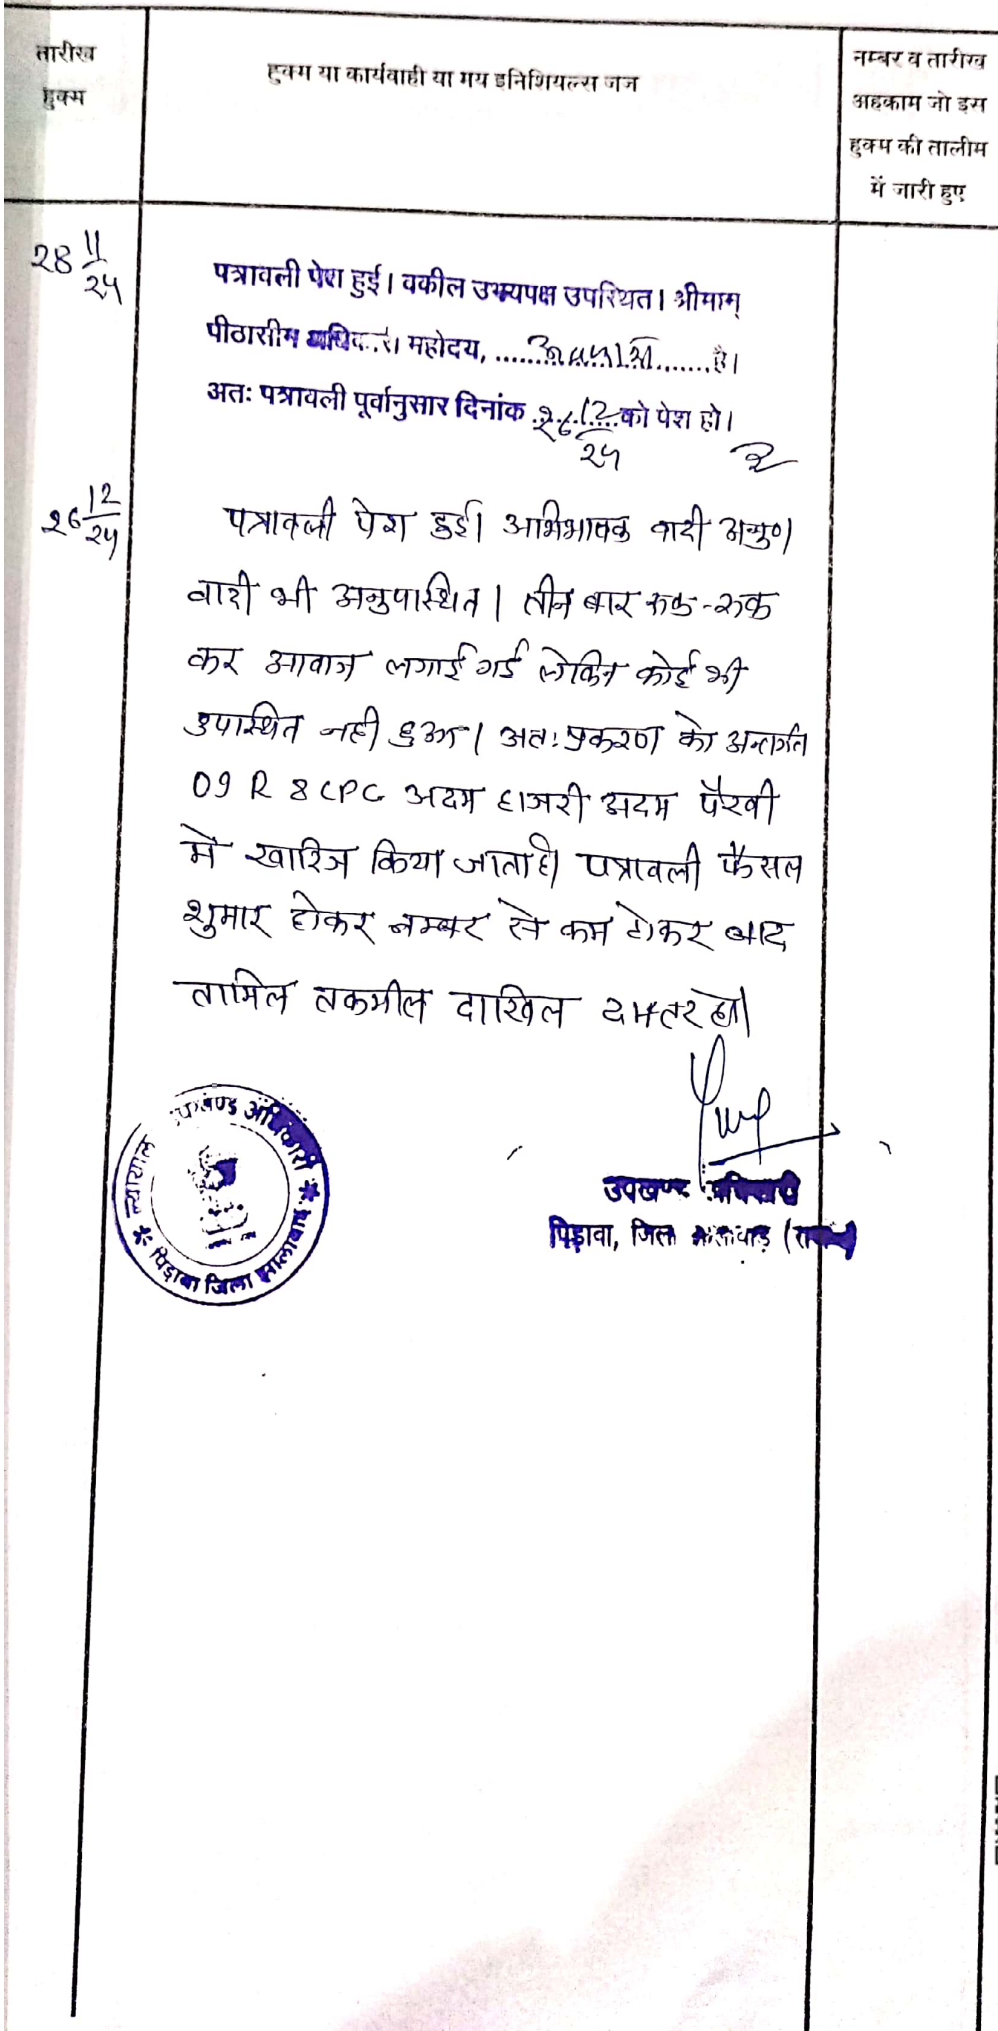 तारीख
हुक्म
हुक्म या कार्यवाही या मय इनिशियल्स जज
नम्बर व तारीख
अहकाम जो इस
हुक्म की तालीम
में जारी हुए
28 11/24
पत्रावली पेश हुई। वकील उभ्यपक्ष उपस्थित। श्रीमाम्
पीठासीम अधिकारी महोदय, ............ है।
अतः पत्रावली पूर्वानुसार दिनांक 26.12/24 को पेश हो।
26 12/24
पत्रावली पेश हुई। अभिभावक वादी अनु०।
वादी भी अनुपास्थित। तीन बार रुक-रुक
कर आवाज लगाई गई लेकिन कोई भी
उपास्थित नही हुआ। अतः प्रकरण को अन्तर्गत
09 R 8 CPC अदम हाजरी अदम पैरवी
में खारिज किया जाता है। पत्रावली फैसल
शुमार होकर नम्बर से कम होकर बाद
तामिल तकमील दाखिल दफ्तर हो।
उपखण्ड अधिकारी
पिड़ावा, जिला झालावाड़ (राज०)
न्यायालय उपखण्ड अधिकारी
पिड़ावा जिला झालावाड़